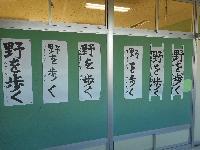 野を歩く
野を歩く
野を歩く
野を歩く
野を歩く
野を歩く